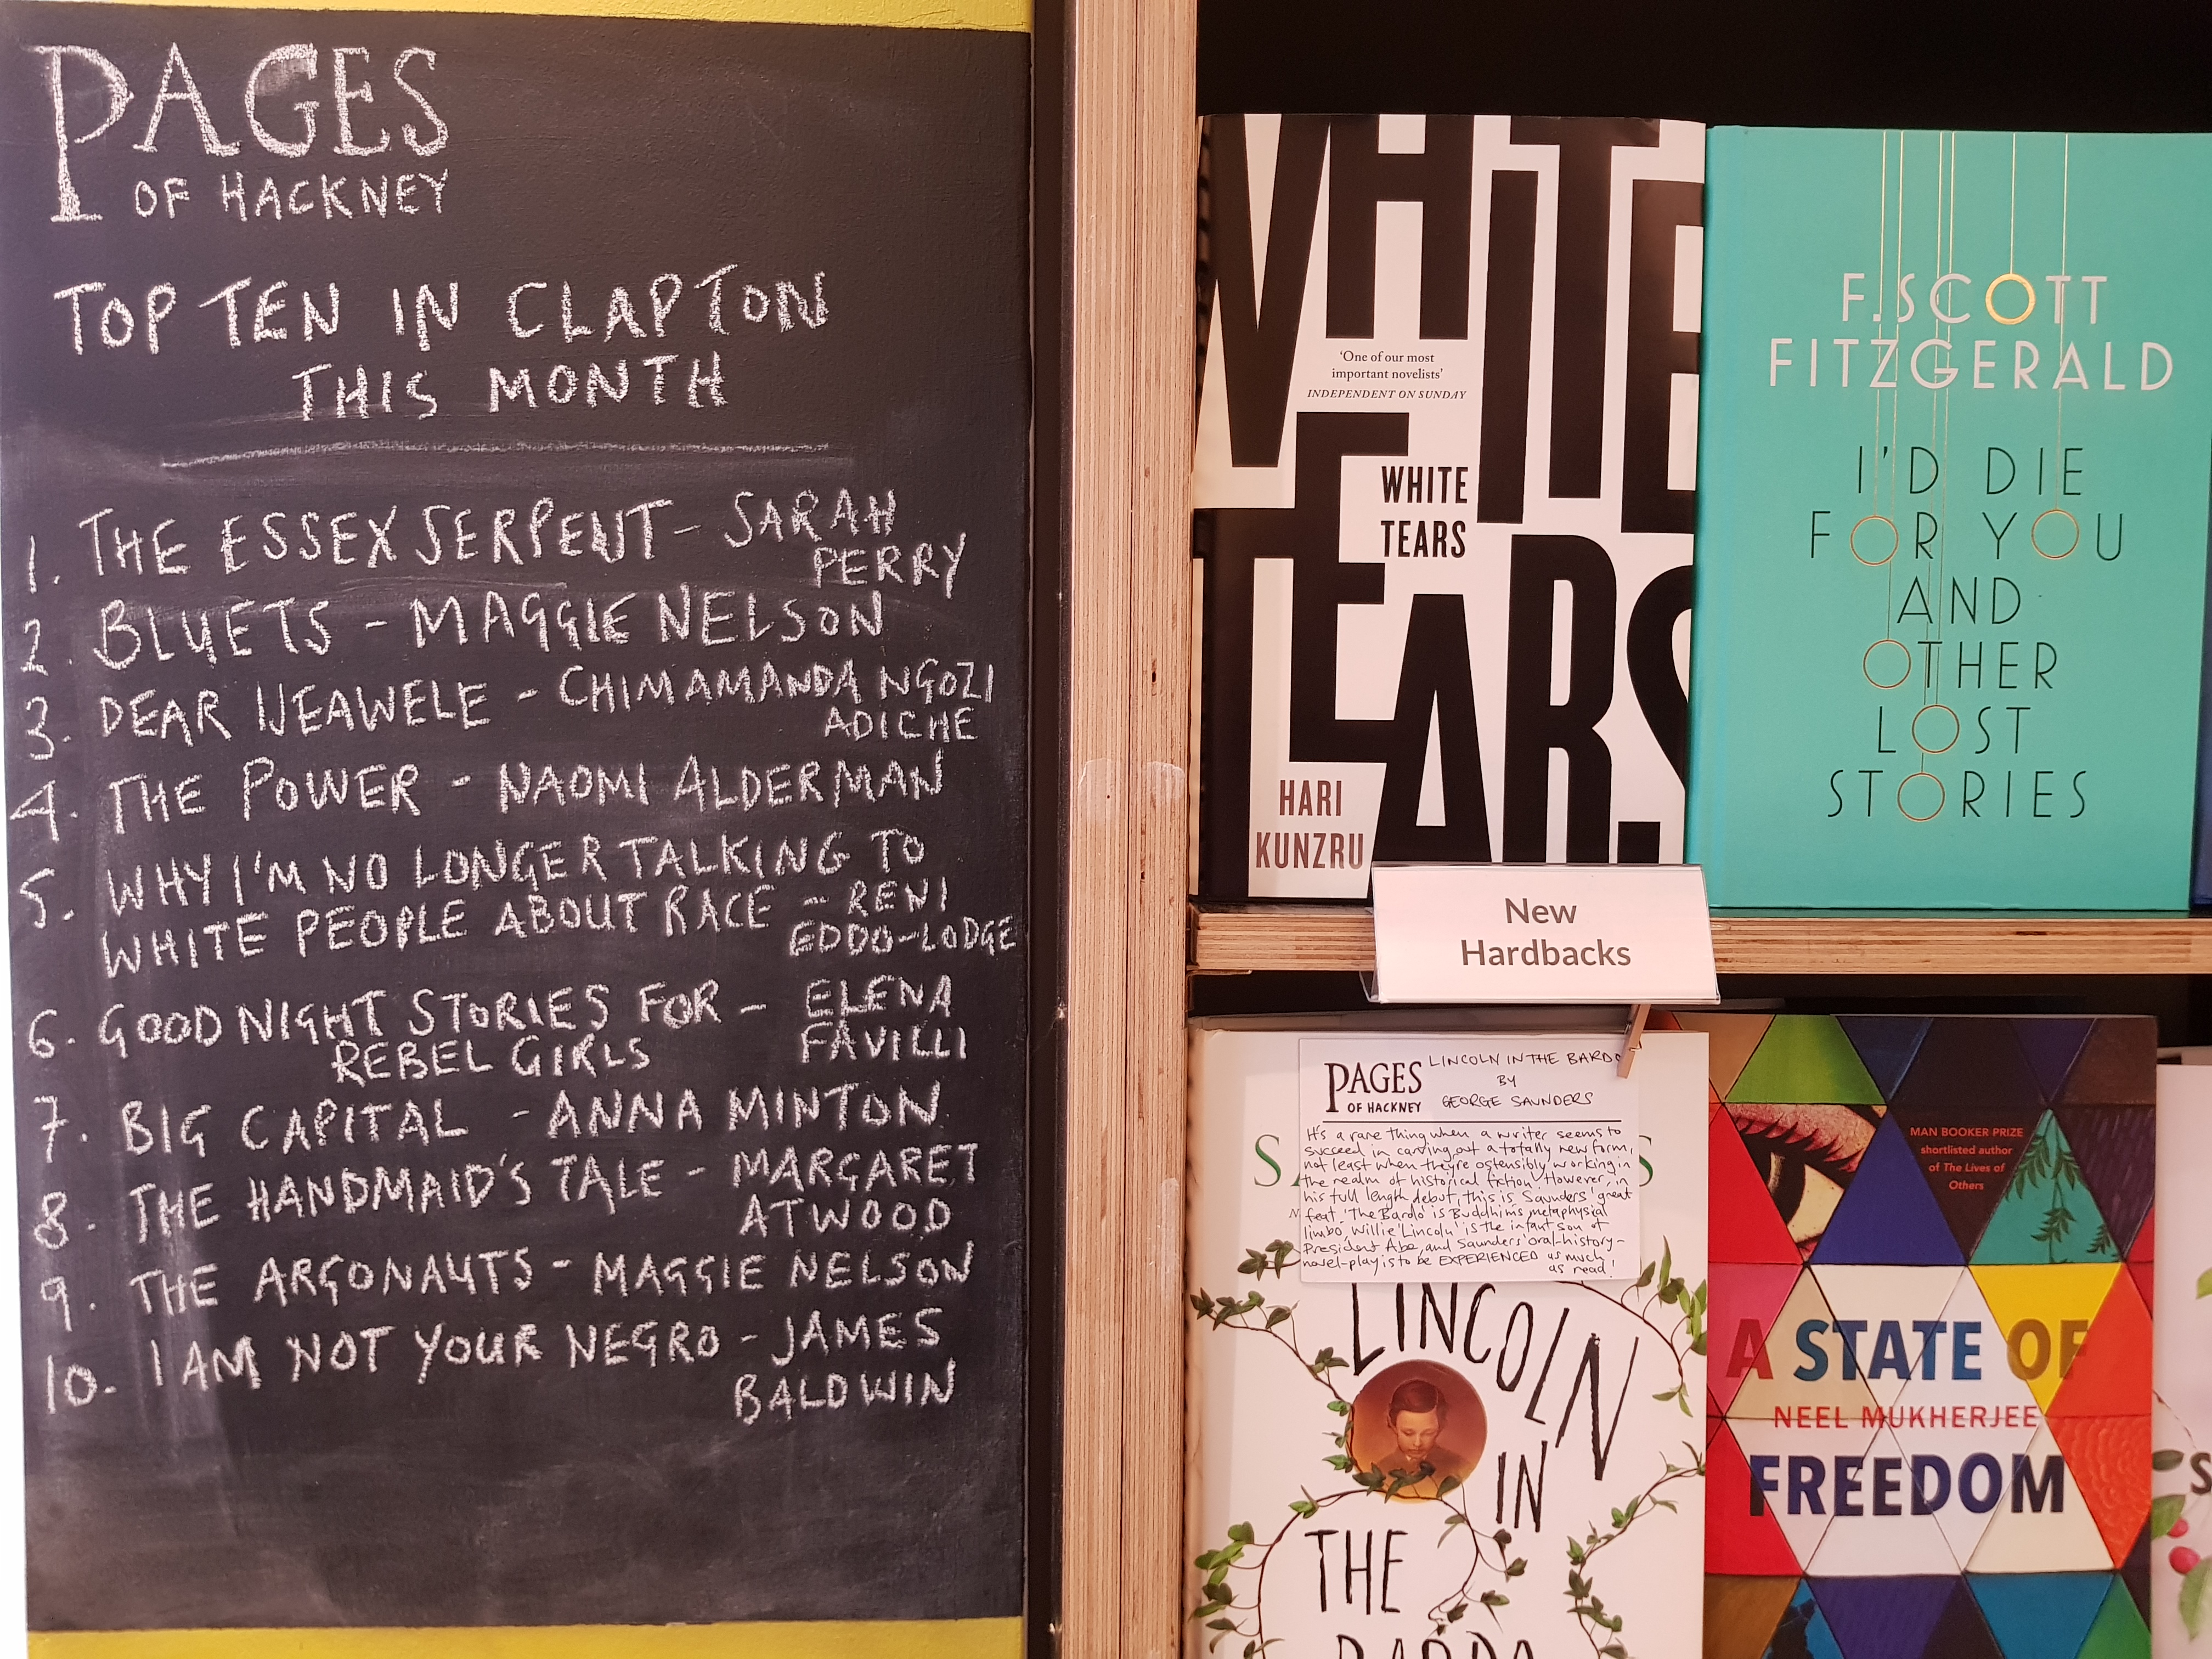 PAGES
OF HACKNEY
TOP TEN IN CLAPTON
THIS MONTH
1. THE ESSEX SERPENT - SARAH
PERRY
2. BLUETS - MAGGIE NELSON
3. DEAR IJEAWELE - CHIMAMANDA NGOZI
ADICHE
4. THE POWER - NAOMI ALDERMAN
5. WHY I'M NO LONGER TALKING TO
WHITE PEOPLE ABOUT RACE - RENI
EDDO-LODGE
6. GOOD NIGHT STORIES FOR - ELENA
REBEL GIRLS FAVILLI
7. BIG CAPITAL - ANNA MINTON
8. THE HANDMAID'S TALE - MARGARET
ATWOOD
9. THE ARGONAUTS - MAGGIE NELSON
10. I AM NOT YOUR NEGRO - JAMES
BALDWIN
WHITE
TEARS
'One of our most
important novelists'
INDEPENDENT ON SUNDAY
WHITE
TEARS
HARI
KUNZRU
F. SCOTT
FITZGERALD
I'D DIE
FOR YOU
AND
OTHER
LOST
STORIES
New
Hardbacks
PAGES
OF HACKNEY
LINCOLN IN THE BARDO
BY
GEORGE SAUNDERS
It's a rare thing when a writer seems to
succeed in carving out a totally new form,
not least when they're ostensibly working in
the realm of historical fiction. However, in
his full length debut, this is Saunders' great
feat. 'The Bardo' is Buddhims metaphysial
limbo, Willie 'Lincoln' is the infant son of
President Abe, and Saunders' oral-history-
novel-play is to be EXPERIENCED as much
as read!
LINCOLN
IN
THE
BARDO
MAN BOOKER PRIZE
shortlisted author
of The Lives of
Others
A STATE OF
NEEL MUKHERJEE
FREEDOM